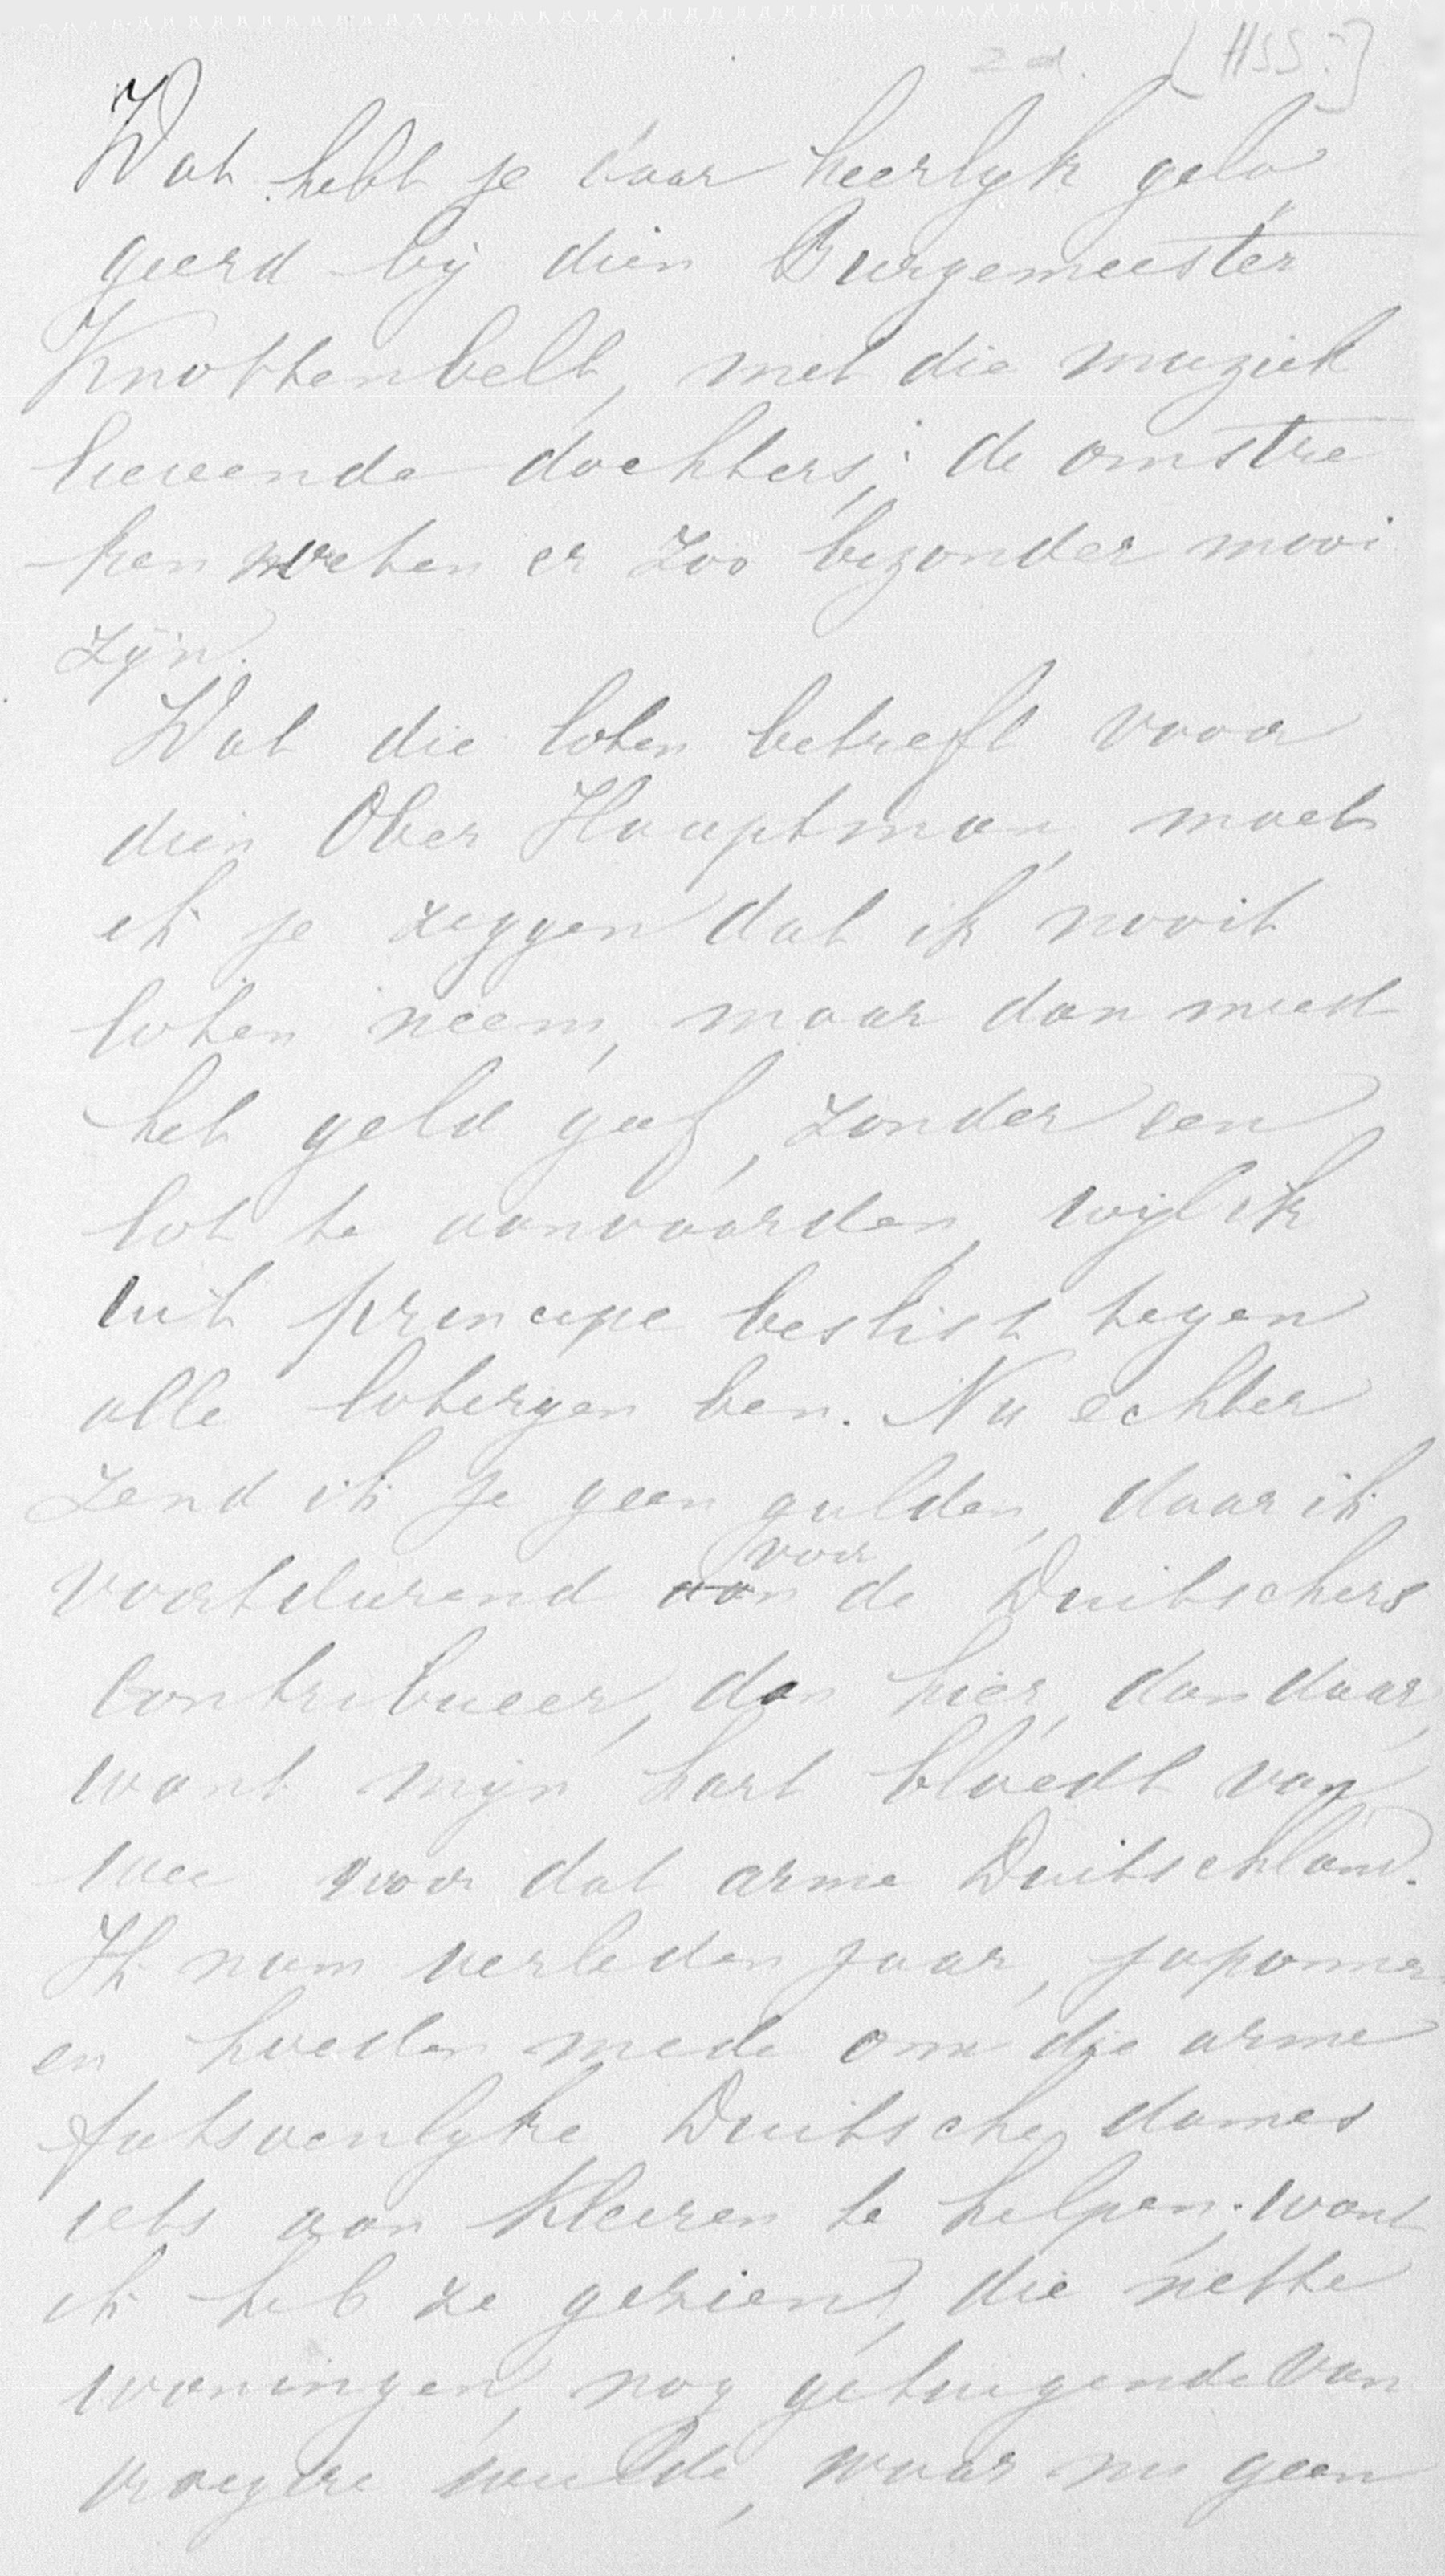 z.d. [HSS:]
Wat hebt je daar heerlyk gelo„
geerd by dien Burgemeester
Knottenbelt, met die muziek
lievende dochters; de omstre
ken moeten er zoo bezonder mooi
zyn.
Wat die loten betreft voor
dien Ober Hauptman, moet
ik je zeggen dat ik nooit
loten neem, maar dan meest
het geld geef, zonder een
lot te aanvaarden, wyl ik
uit principe beslist tegen
alle loteryen ben. Nu echter
zend ik je geen gulden, daar ik
voor
voortdurend aan de Duitschers
contribueer, dan hier, dan daar,
want myn hart bloedt van
wee voor dat arme Duitschland.
Ik nam verleden jaar, japonnen
en hoeden mede om die arme
fatsoenlyke Duitsche dames
iets aan kleeren te helpen; want
ik heb ze gezien, die nette
woningen, nog getuigende van
vroegere weelde, waar nu geen